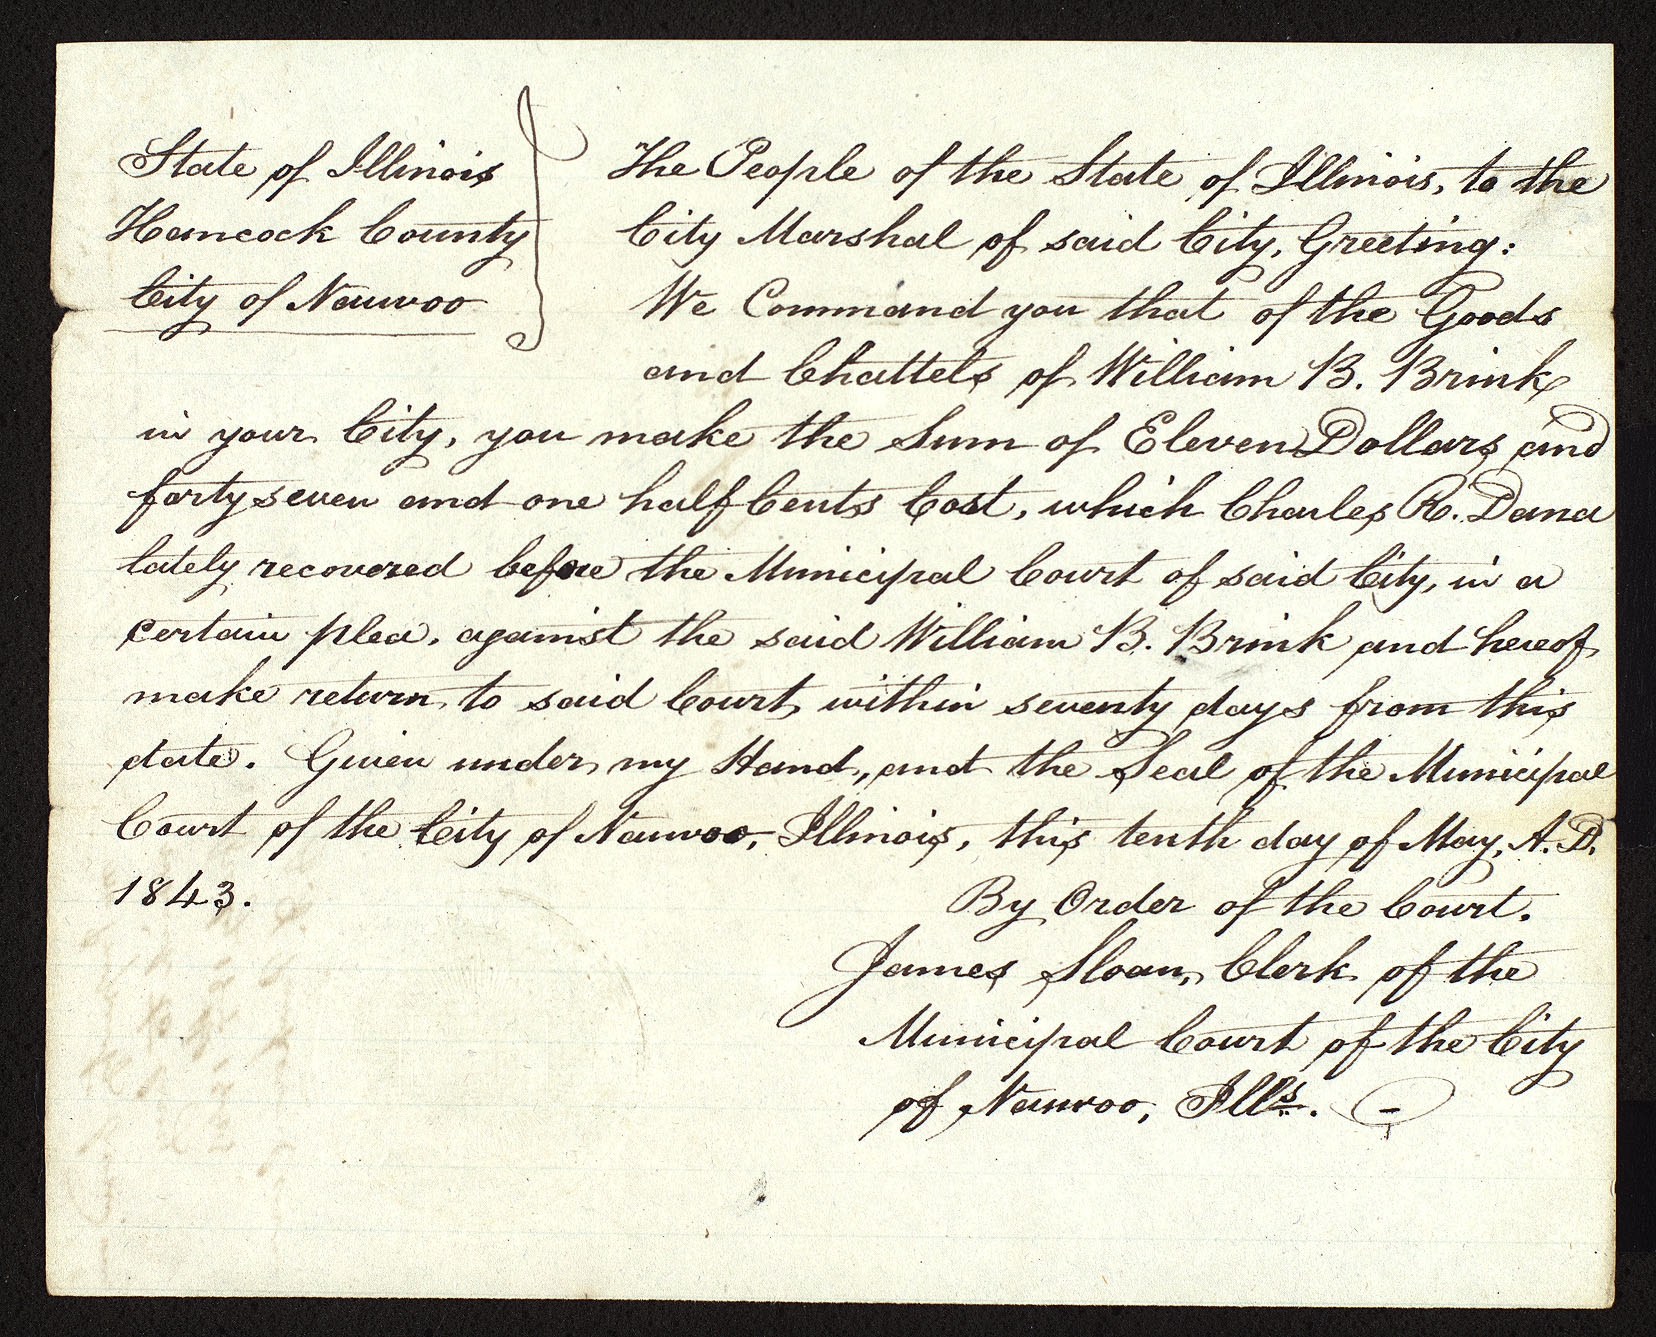 State of Illinois
Hancock County
City of Nauvoo
The People of the State of Illinois, to the
City Marshal of said City, Greeting:
We Command you that of the Goods
and Chattels of William B. Brink,
in your City, you make the Sum of Eleven Dollars, and
forty seven and one half Cents Cost, which Charles R. Dana
lately recovered before the Municipal Court of said City, in a
certain plea, against the said William B. Brink and hereof
make return to said Court, within seventy days from this
date. Given under my Hand, and the Seal of the Municipal
Court of the City of Nauvoo, Illinois, this tenth day of May, A.D.
1843.
By Order of the Court.
James Sloan, Clerk of the
Municipal Court of the City
of Nauvoo, Ills.